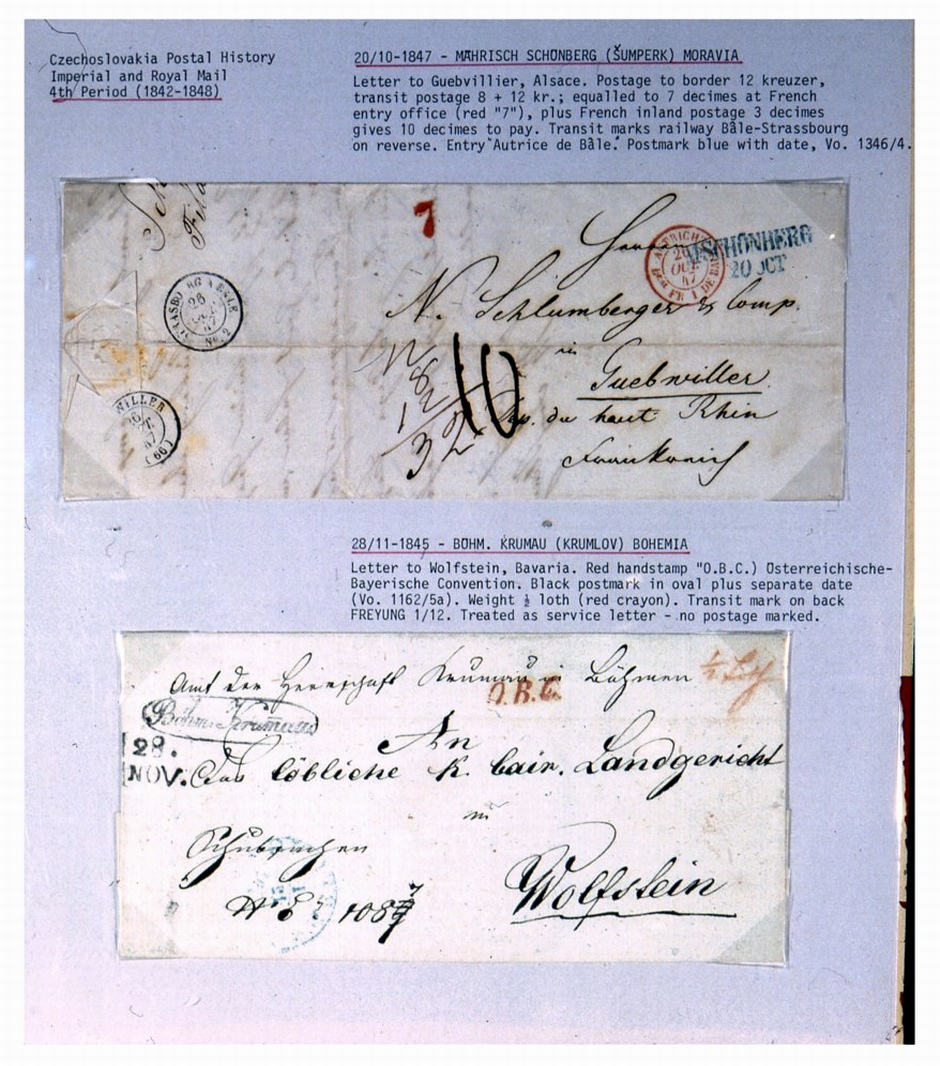 Czechoslovakia Postal History
Imperial and Royal Mail
4th Period (1842-1848)
20/10-1847 - MÄHRISCH SCHÖNBERG (ŠUMPERK) MORAVIA
Letter to Guebvillier, Alsace. Postage to border 12 kreuzer,
transit postage 8 + 12 kr.; equalled to 7 decimes at French
entry office (red "7"), plus French inland postage 3 decimes
gives 10 decimes to pay. Transit marks railway Bâle-Strassbourg
on reverse. Entry Autrice de Bâle. Postmark blue with date, Vo. 1346/4.
7
SCHÖNBERG
20 OCT
N. Schlumberger & Comp.
in
Guebwiller
10
du haut Rhin
Frankreich
28/11-1845 - BÖHM. KRUMAU (KRUMLOV) BOHEMIA
Letter to Wolfstein, Bavaria. Red handstamp "O.B.C.) Österreichische-
Bayerische Convention. Black postmark in oval plus separate date
(Vo. 1162/5a). Weight ½ loth (red crayon). Transit mark on back
FREYUNG 1/12. Treated as service letter - no postage marked.
Amt der Herrschaft Krumau in Böhmen
½ Loth
O.B.C.
Böhm: Krumau
28.
NOV.
An
Das löbliche K. bair. Landgericht
in
Wolfstein